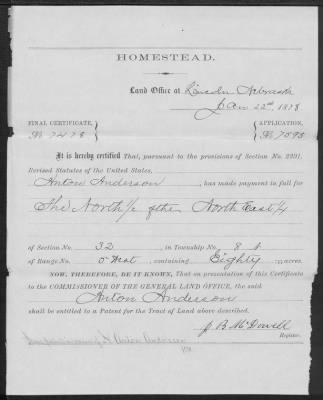 HOMESTEAD.
Land Office at Lincoln Nebraska
Jan 22d, 1878
FINAL CERTIFICATE, APPLICATION,
No 7595
It is hereby certified That, pursuant to the provisions of Section No. 2291,
Revised Statutes of the United States,
Anton Anderson, has made payment in full for
The North 1/2 of the North East 1/4
of Section No. 32, in Township No. 8 N
of Range No. 5 West, containing Eighty acres.
NOW, THEREFORE, BE IT KNOWN, That on presentation of this Certificate
to the COMMISSIONER OF THE GENERAL LAND OFFICE, the said
Anton Anderson
shall be entitled to a Patent for the Tract of Land above described.
J B McDowell
Register.
Anton Anderson